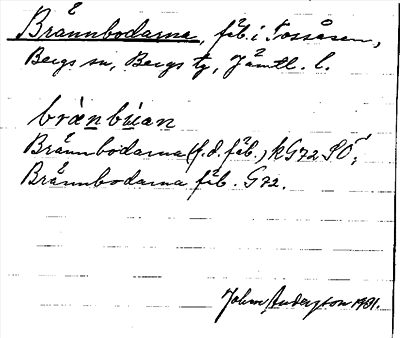 Brännbodarna, fäb. i Tossåsen,
Bergs sn, Bergs tg, Jämtl. l.
bræ̀nbùan
Brännbodarna (f.d. fäb.) k G72 SÖ;
Brännbodarna fäb. G72.
John Andersson 1931.